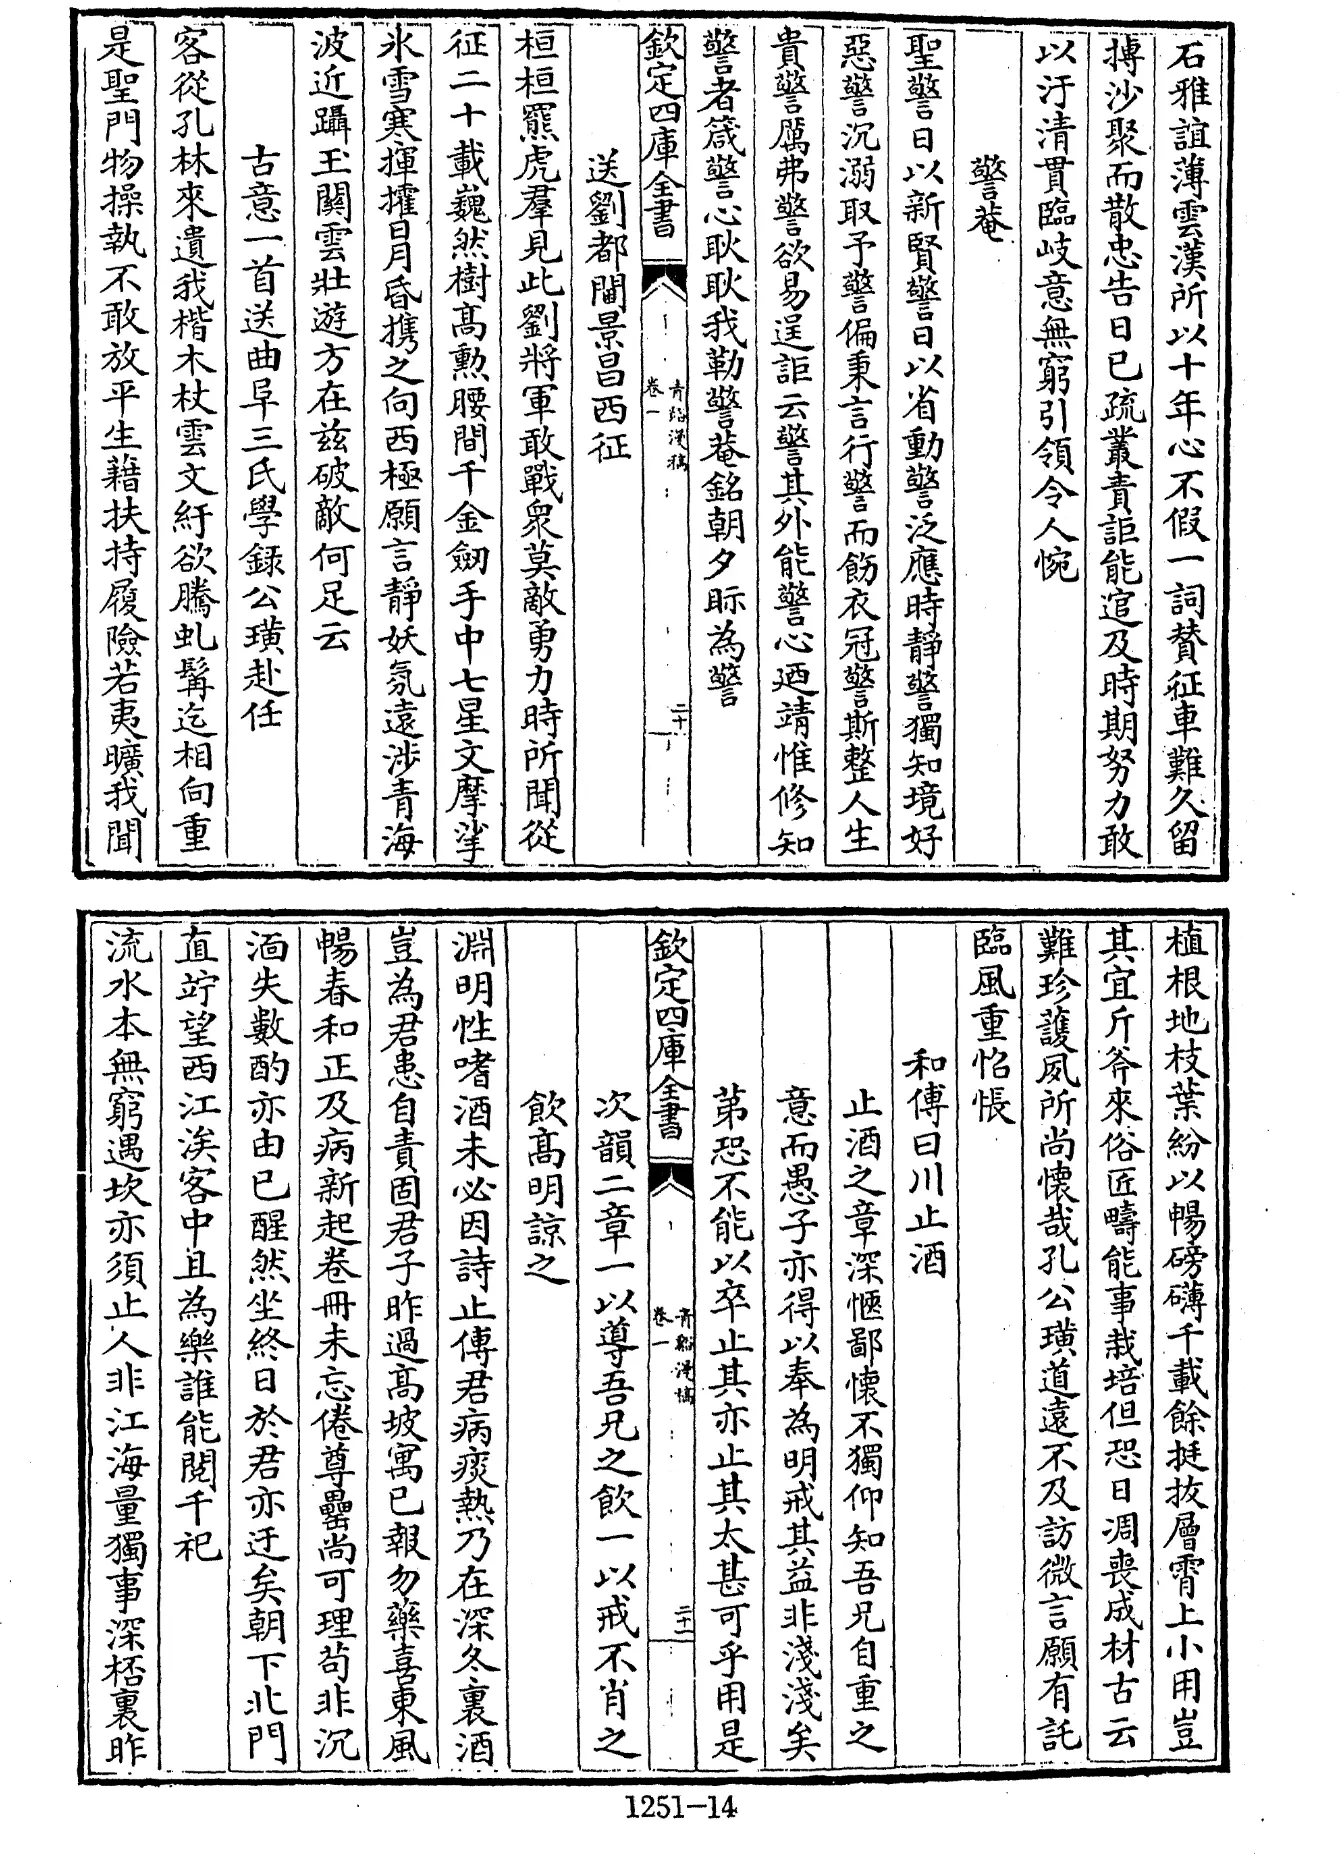 石雅誼薄雲漢所以十年心不假一詞賛征車難久留
摶沙聚而散忠告日已疏叢責詎能逭及時期努力敢
以汙清貫臨岐意無窮引領令人惋
警菴
聖警日以新賢警日以省動警泛應時靜警獨知境好
惡警沉溺取予警偏秉言行警而飭衣冠警斯整人生
貴警厲弗警欲易逞詎云警其外能警心迺靖惟修知
警者箴警心耿耿我勒警菴銘朝夕眎為警
欽定四庫全書
青谿漫稿
卷一
二十
送劉都閫景昌西征
桓桓羆虎羣見此劉將軍敢戰衆莫敵勇力時所聞從
征二十載巍然樹髙勲腰間千金劒手中七星文摩挲
氷雪寒揮攉日月昏携之向西極願言靜妖氛遠涉青海
波近躡玉關雲壯遊方在兹破敵何足云
古意一首送曲阜三氏學録公璜赴任
客從孔林來遺我楷木杖雲文紆欲騰虬髯迄相向重
是聖門物操執不敢放平生藉扶持履險若夷曠我聞
植根地枝葉紛以暢磅礴千載餘挺㧞層霄上小用豈
其宜斤斧來俗匠疇能事栽培但恐日凋喪成材古云
難珍護夙所尚懐哉孔公璜道遠不及訪微言願有託
臨風重怊悵
和傅曰川止酒
止酒之章深愜鄙懐不獨仰知吾兄自重之
意而愚子亦得以奉為明戒其益非淺淺矣
苐恐不能以卒止其亦止其太甚可乎用是
欽定四庫全書
青谿漫稿
卷一
二十一
次韻二章一以導吾兄之飲一以戒不肖之
飲髙明諒之
淵明性嗜酒未必因詩止傅君病痰熱乃在深冬裏酒
豈為君患自責固君子昨過髙坡寓已報勿藥喜東風
暢春和正及病新起卷冊未忘倦尊罍尚可理茍非沉
湎失數酌亦由已醒然坐終日於君亦迂矣朝下北門
直竚望西江涘客中且為樂誰能閱千祀
流水本無窮遇坎亦須止人非江海量獨事深桮裏昨
1251-14